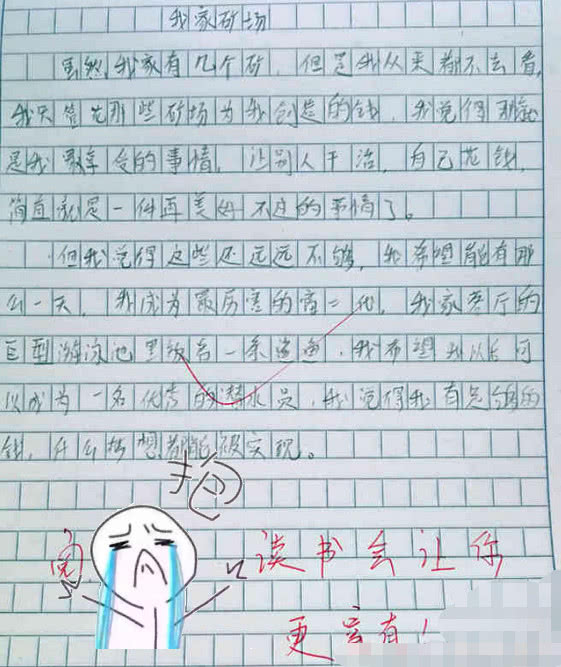 我家矿场
虽然我家有几个矿，但是我从来都不去看，
我只管花那些矿场为我创造的钱，我觉得那就
是我最享受的事情，让别人干活，自己花钱，
简直就是一件再美好不过的事情了。
但我觉得这些还远远不够，我希望能有那
么一天，我成为最厉害的富二代，我家客厅的
巨型游泳池里放着一条鲨鱼，我希望我从后可
以成为一名优秀的潜水员，我觉得我有足够的
钱，什么梦想都能被实现。
抱
读书会让你
更富有！